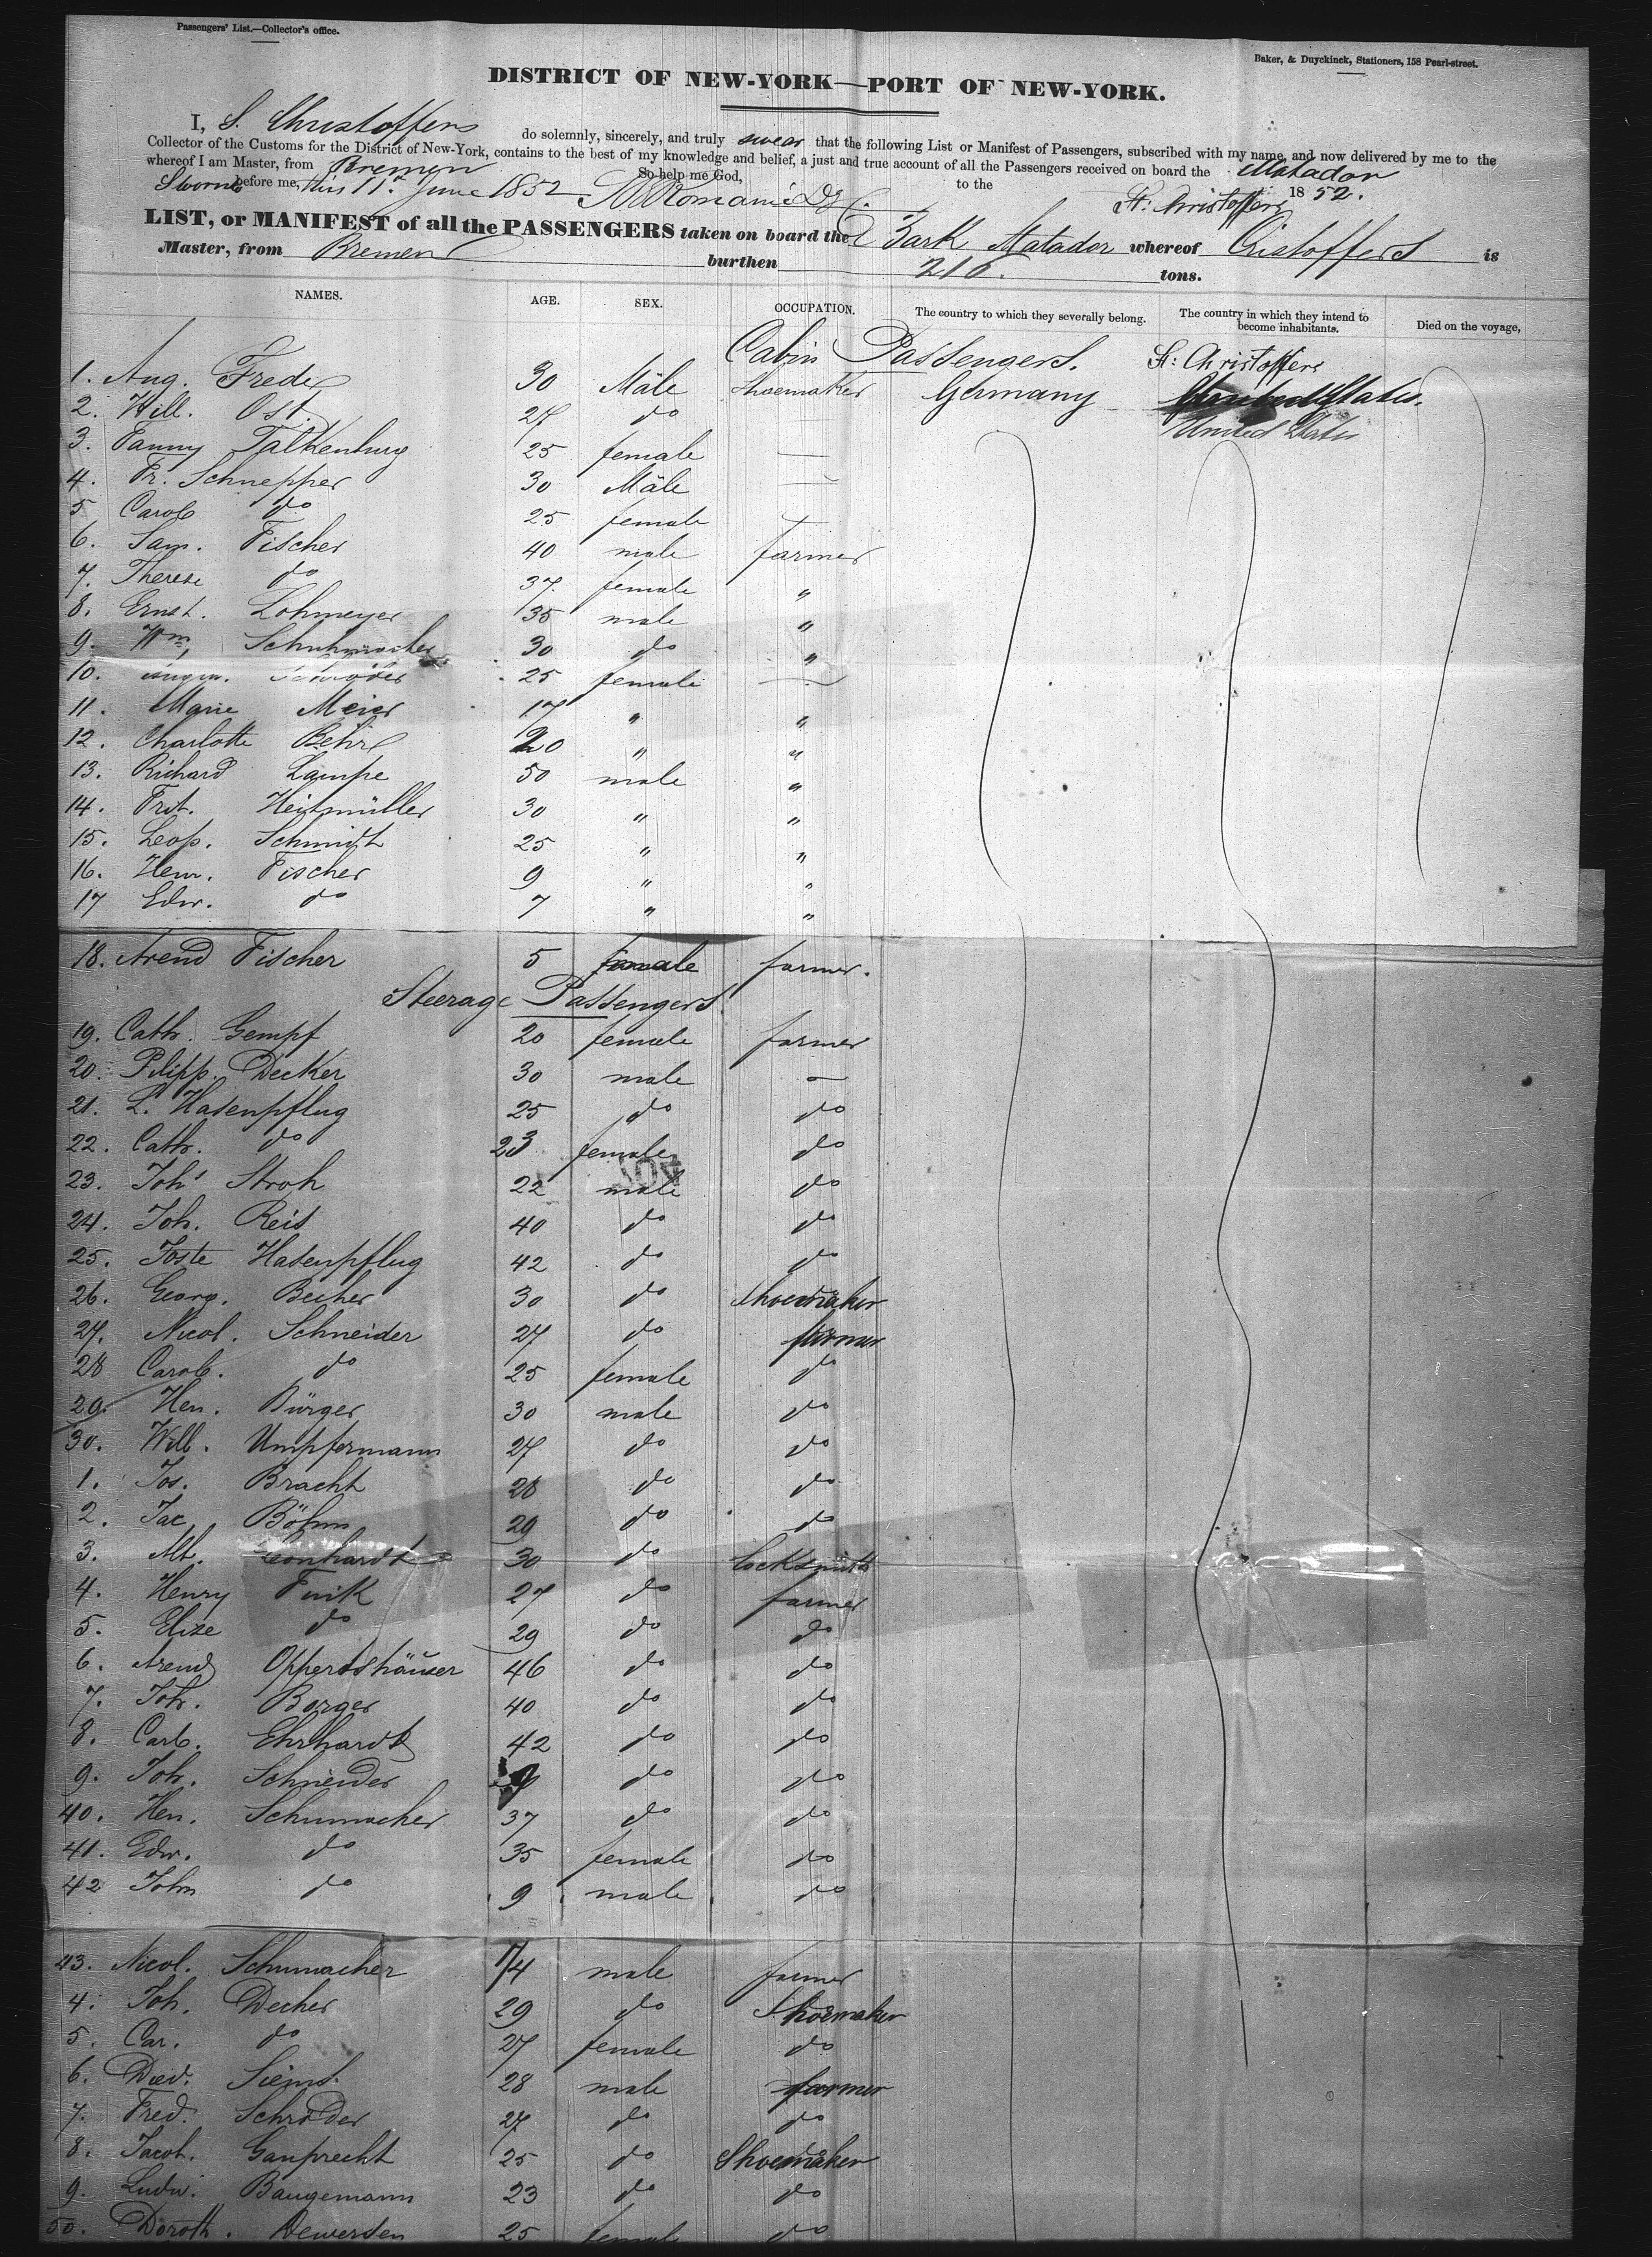 Passengers' List.—Collector's office.
Baker, & Duyckinck, Stationers, 158 Pearl-street.
DISTRICT OF NEW-YORK—PORT OF NEW-YORK.
I, S. Christoffers do solemnly, sincerely, and truly swear that the following List or Manifest of Passengers, subscribed with my name, and now delivered by me to the
Collector of the Customs for the District of New-York, contains to the best of my knowledge and belief, a just and true account of all the Passengers received on board the Matador
whereof I am Master, from Bremen So help me God,
Sworn to before me, this 11th June 1852 to the St: Christoffers 1852.
LIST, or MANIFEST of all the PASSENGERS taken on board the Bark Matador whereof Cristoffers is
Master, from Bremen burthen 216. tons.
NAMES. AGE. SEX. OCCUPATION. The country to which they severally belong. The country in which they intend to become inhabitants. Died on the voyage,
Cabin Passengers. St: Christoffers
1. Aug. Frede 30 Mäle Shoemaker Germany United States.
2. Will. Ost. 27 do — United States
3. Fanny Falkenburg 25 female —
4. Fr. Schnepper 30 Mäle —
5 Carol do 25 female —
6. Sam. Fischer 40 male farmer
7. Therese do 37. female "
8. Ernst. Lohmeyer 35 male "
9. Wm Schuhmacher 30 do "
10. Schröder 25 female —
11. Marie Meier 17 " "
12. Charlotte Behre 20 " "
13. Richard Lampe 50 male "
14. Frd. Heitmüller 30 " "
15. Leop. Schmidt 25 " "
16. Henr. Fischer 9 " "
17 Edw. do 7 " "
18. Arend Fischer 5 male farmer.
Steerage Passengers
19. Cath. Gempf 20 female farmer
20. Pilipp. Decker 30 male —
21. L. Hasenpflug 25 do do
22. Cath. do 23 female do
23. Joh. Stroh 22 male do
24. Joh. Reis 40 do do
25. Joste Hasenpflug 42 do do
26. Georg. Becher 30 do Shoemaker
27. Nicol. Schneider 27 do farmer
28 Carol. do 25 female do
29. Hen. Bürger 30 male do
30. Will. Umpfermann 27 do do
1. Jos. Bracht 28 do do
2. Jac Böhm 29 do do
3. Alb. Leonhardt 30 do Locksmith
4. Henry Funk 27 do farmer
5. Elize do 29 do do
6. Arend Opperdshäuser 46 do do
7. Joh. Borger 40 do do
8. Carl. Ehrhardt 42 do do
9. Joh. Schneider do do
40. Hen. Schumacher 37 do do
41. Edw. do 35 female do
42 John do 9 male do
43. Nicol. Schumacher 1/4 male farmer
4. Joh. Decher 29 do Shoemaker
5. Car. do 27 female do
6. Died. Siems. 28 male farmer
7. Fred. Schröder 27. do do
8. Jacob. Gauprecht 25 do Shoemaker
9. Ludw. Baugemann 23 do do
50. Doroth. Dewerden 25 female do